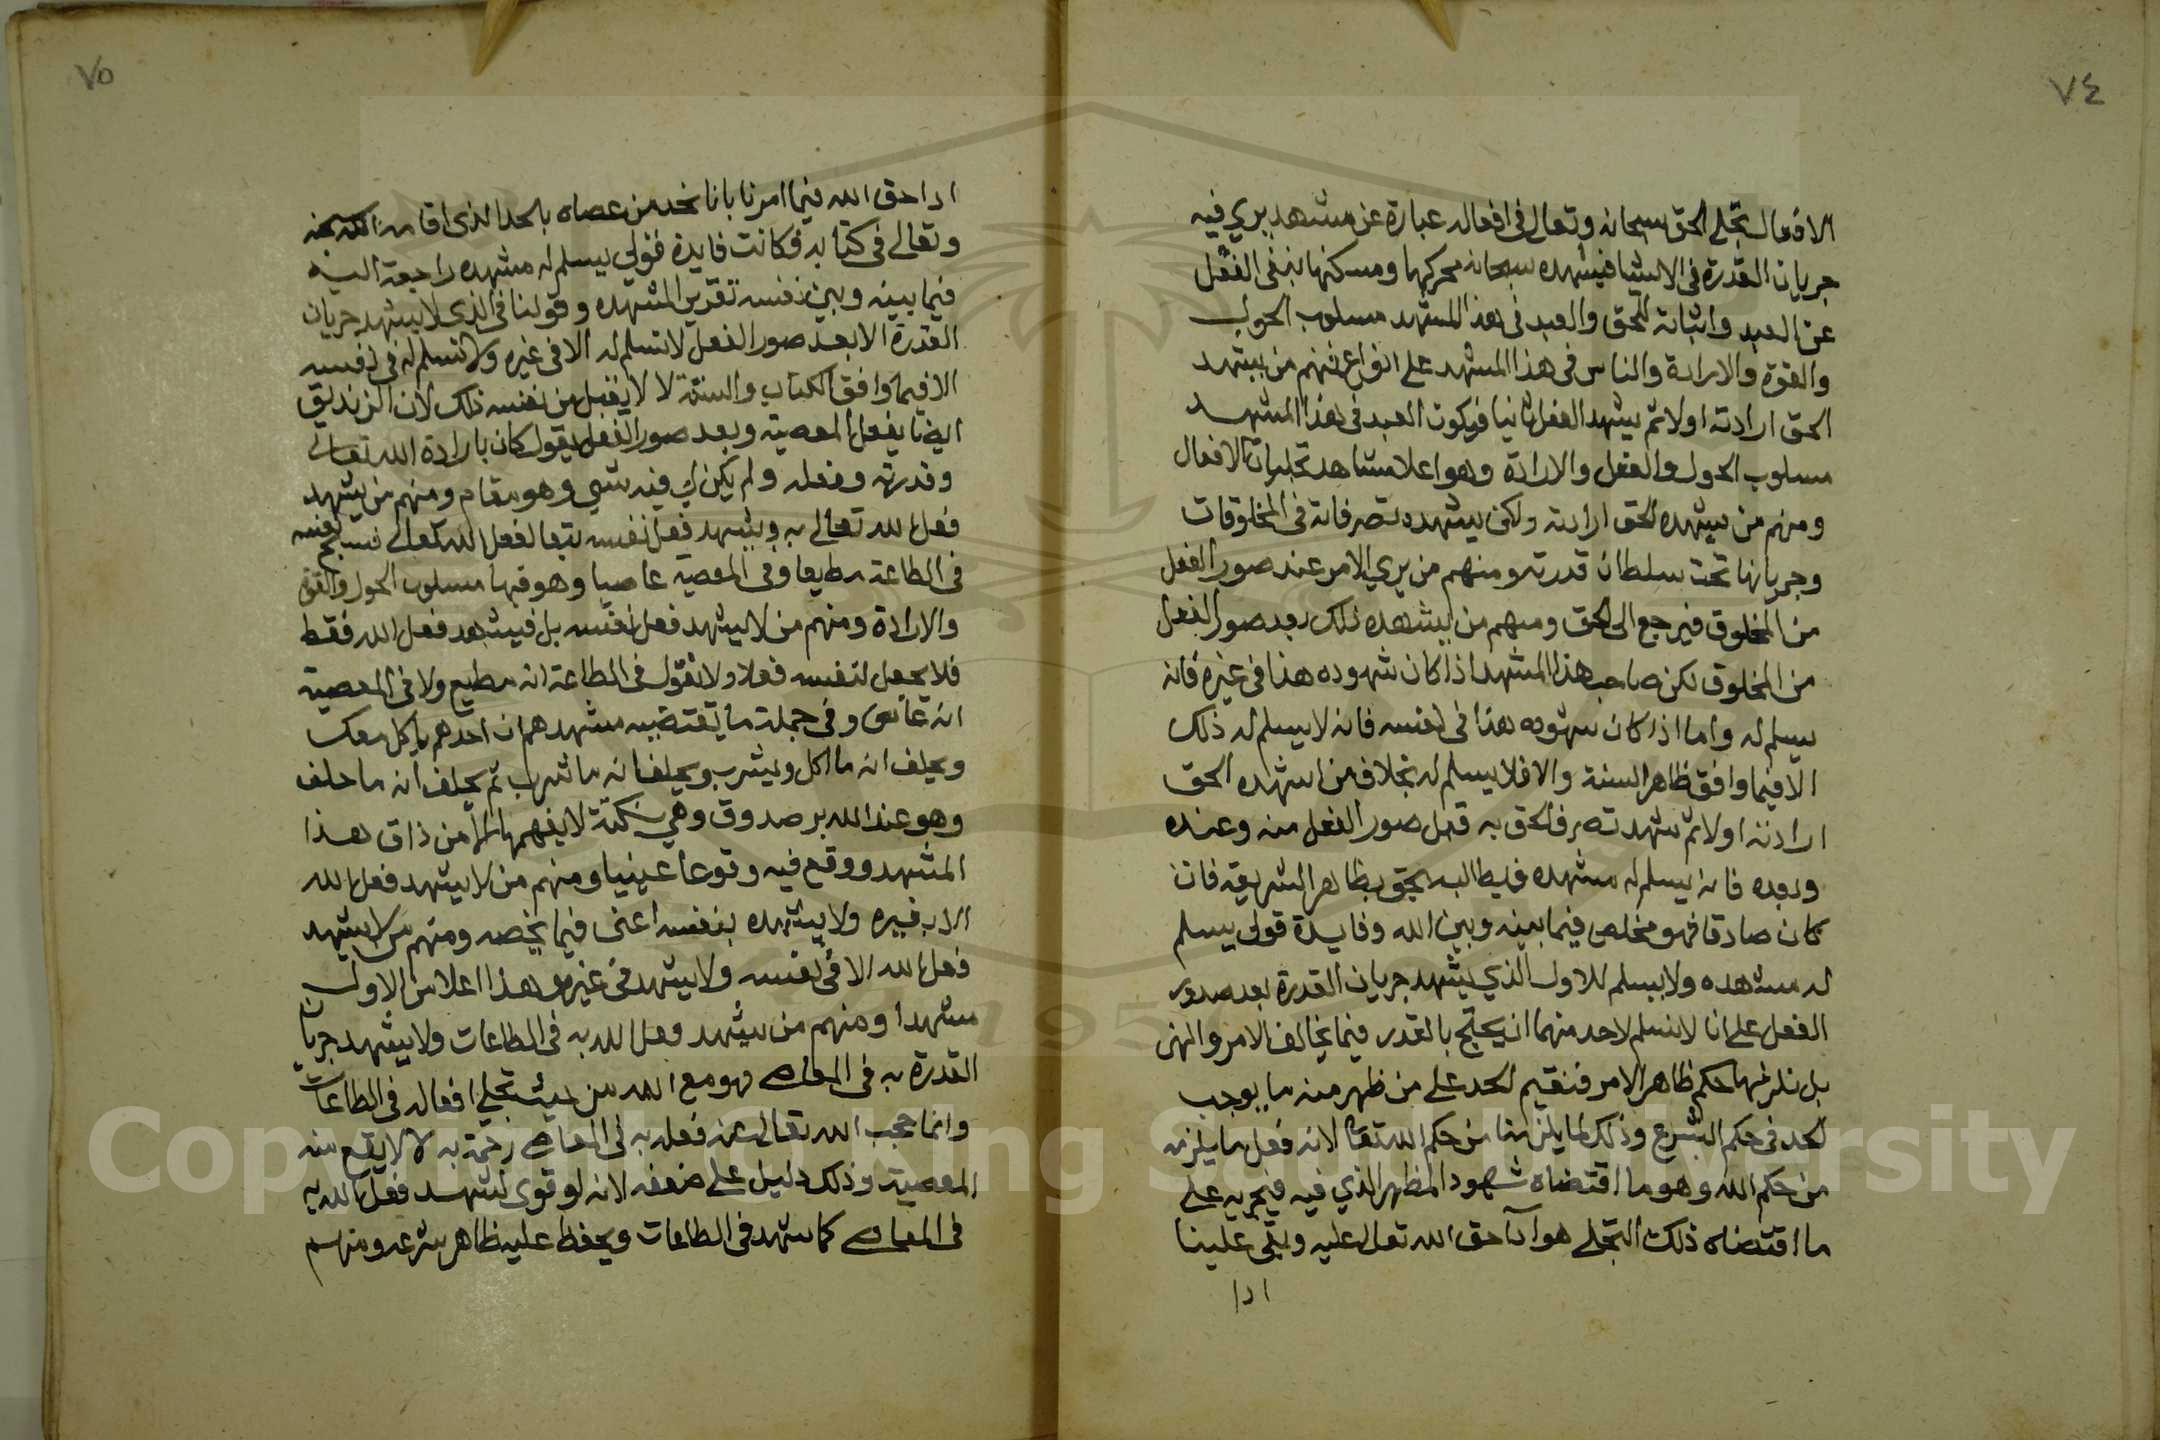 ٧٤
الافعال تجلي الحق سبحانه وتعالى في افعاله عبارة عن مشهد يري فيه
جريان القدرة في الاشيا فيشهده سبحانه محركها ومسكنها بنفي الفعل
عن العبد واثباته للحق والعبد في هذا المشهد مسلوب الحول
والقوة والارادة والناس في هذا المشهد على انواع فمنهم من يشهد
الحق ارادته اولا ثم يشهد الفعل ثانيا فيكون العبد في هذا المشهد
مسلوب الحول والفعل والارادة وهو اعلا مشاهد تجليات الافعال
ومنهم من يشهده الحق ارادته ولكن يشهده تصرفاته في المخلوقات
وجريانها تحت سلطان قدرته ومنهم من يري الامر عند صور الفعل
من المخلوق فيرجع الى الحق ومنهم من يشهده ذلك بعد صور الفعل
من المخلوق لكن صاحب هذا المشهد اذا كان شهوده هذا في غيره فانه
يسلم له واما اذا كان شهوده هذا في نفسه فانه لا يسلم له ذلك
الا فيما وافق ظاهر السنة والا فلا يسلم له بخلاف من اشهده الحق
ارادته اولا ثم شهد تصرف الحق به قبل صور الفعل منه وعنده
وبعده فانه يسلم له مشهده فيطالبه بحق بظاهر الشريعة فان
كان صادقا فهو مخلص فيما بينه وبين الله وفايدة قولي يسلم
له مشهده ولا يسلم للاول الذي يشهد جريان القدرة بعد صدور
الفعل على انا لا نسلم لاحد منهما ان يحتج بالقدر فيما يخالف الامر والنهي
بل نلزمهما حكم ظاهر الامر فنقيم الحد على من ظهر منه ما يوجب
الحد في حكم الشرع وذلك لما يلزمنا من حكم الله تعالى لانه فعل ما يلزمه
من حكم الله وهو ما اقتضاه شهود المظهر الذي فيه فيجريه على
ما اقتضاه ذلك التجلي هو ادآ حق الله تعالى عليه وبقي علينا
ادا
٧٥
ادا حق الله فيما امرنا بانا نحد من عصاه بالحد الذي اقامه الله سبحانه
وتعالى في كتابه فكانت فايدة قولي يسلم له مشهده راجعة اليه
فيما بينه وبين نفسه تقرير المشهده وقولنا في الذي لا يشهد جريان
القدرة الا بعد صور الفعل لا نسلم له الا في غيره ولا نسلم له في نفسه
الا فيما وافق الكتاب والسنة لا لا يقبل من نفسه ذلك لان الزنديق
ايضا يفعل المعصية وبعد صور الفعل يقول كان بارادة الله تعالى
وقدرته وفعله ولم يكن لي فيه شي وهو مقام ومنهم من يشهد
فعل الله تعالى به ويشهد فعل نفسه تبعا لفعل الله تعالى فيسمي نفسه
في الطاعة مطيعا وفي المعصية عاصيا وهو فيها مسلوب الحول والقوة
والارادة ومنهم من لا يشهد فعل نفسه بل فيشهد فعل الله فقط
فلا يجعل لنفسه فعلا ولا نقول في الطاعة انه مطيع ولا في المعصية
انه عاص وفي جملة ما يقتضيه مشهدهم ان احدهم ياكل معك
ويحلف انه ما اكل ويشرب ويحلف انه ما شرب ثم يحلف انه ما حلف
وهو عند الله بر صدوق وهي نكتة لا يفهمها الا من ذاق هذا
المشهد ووقع فيه وقوعا عينيا ومنهم من لا يشهد فعل الله
الا بغيره ولا يشهده بنفسه اعنى فيما يخصه ومنهم من لا يشهد
فعل الله الا في نفسه ولا يشهد في غيره وهذا اعلا من الاول
مشهدا ومنهم من يشهد فعل الله به في الطاعات ولا يشهد جريان
القدرة به في المعاصي فهو مع الله من حيث تجلي افعاله في الطاعات
وانما حجب الله تعالى عنه فعله به في المعاصي رحمة به لالا يقع منه
المعصية وذلك دليل على ضعفه لانه لو قوى لشهد فعل الله به
في المعاصي كما شهد في الطاعات ويحفظ عليه ظاهر شرعه ومنهم
Copyright © King Saud University
1957